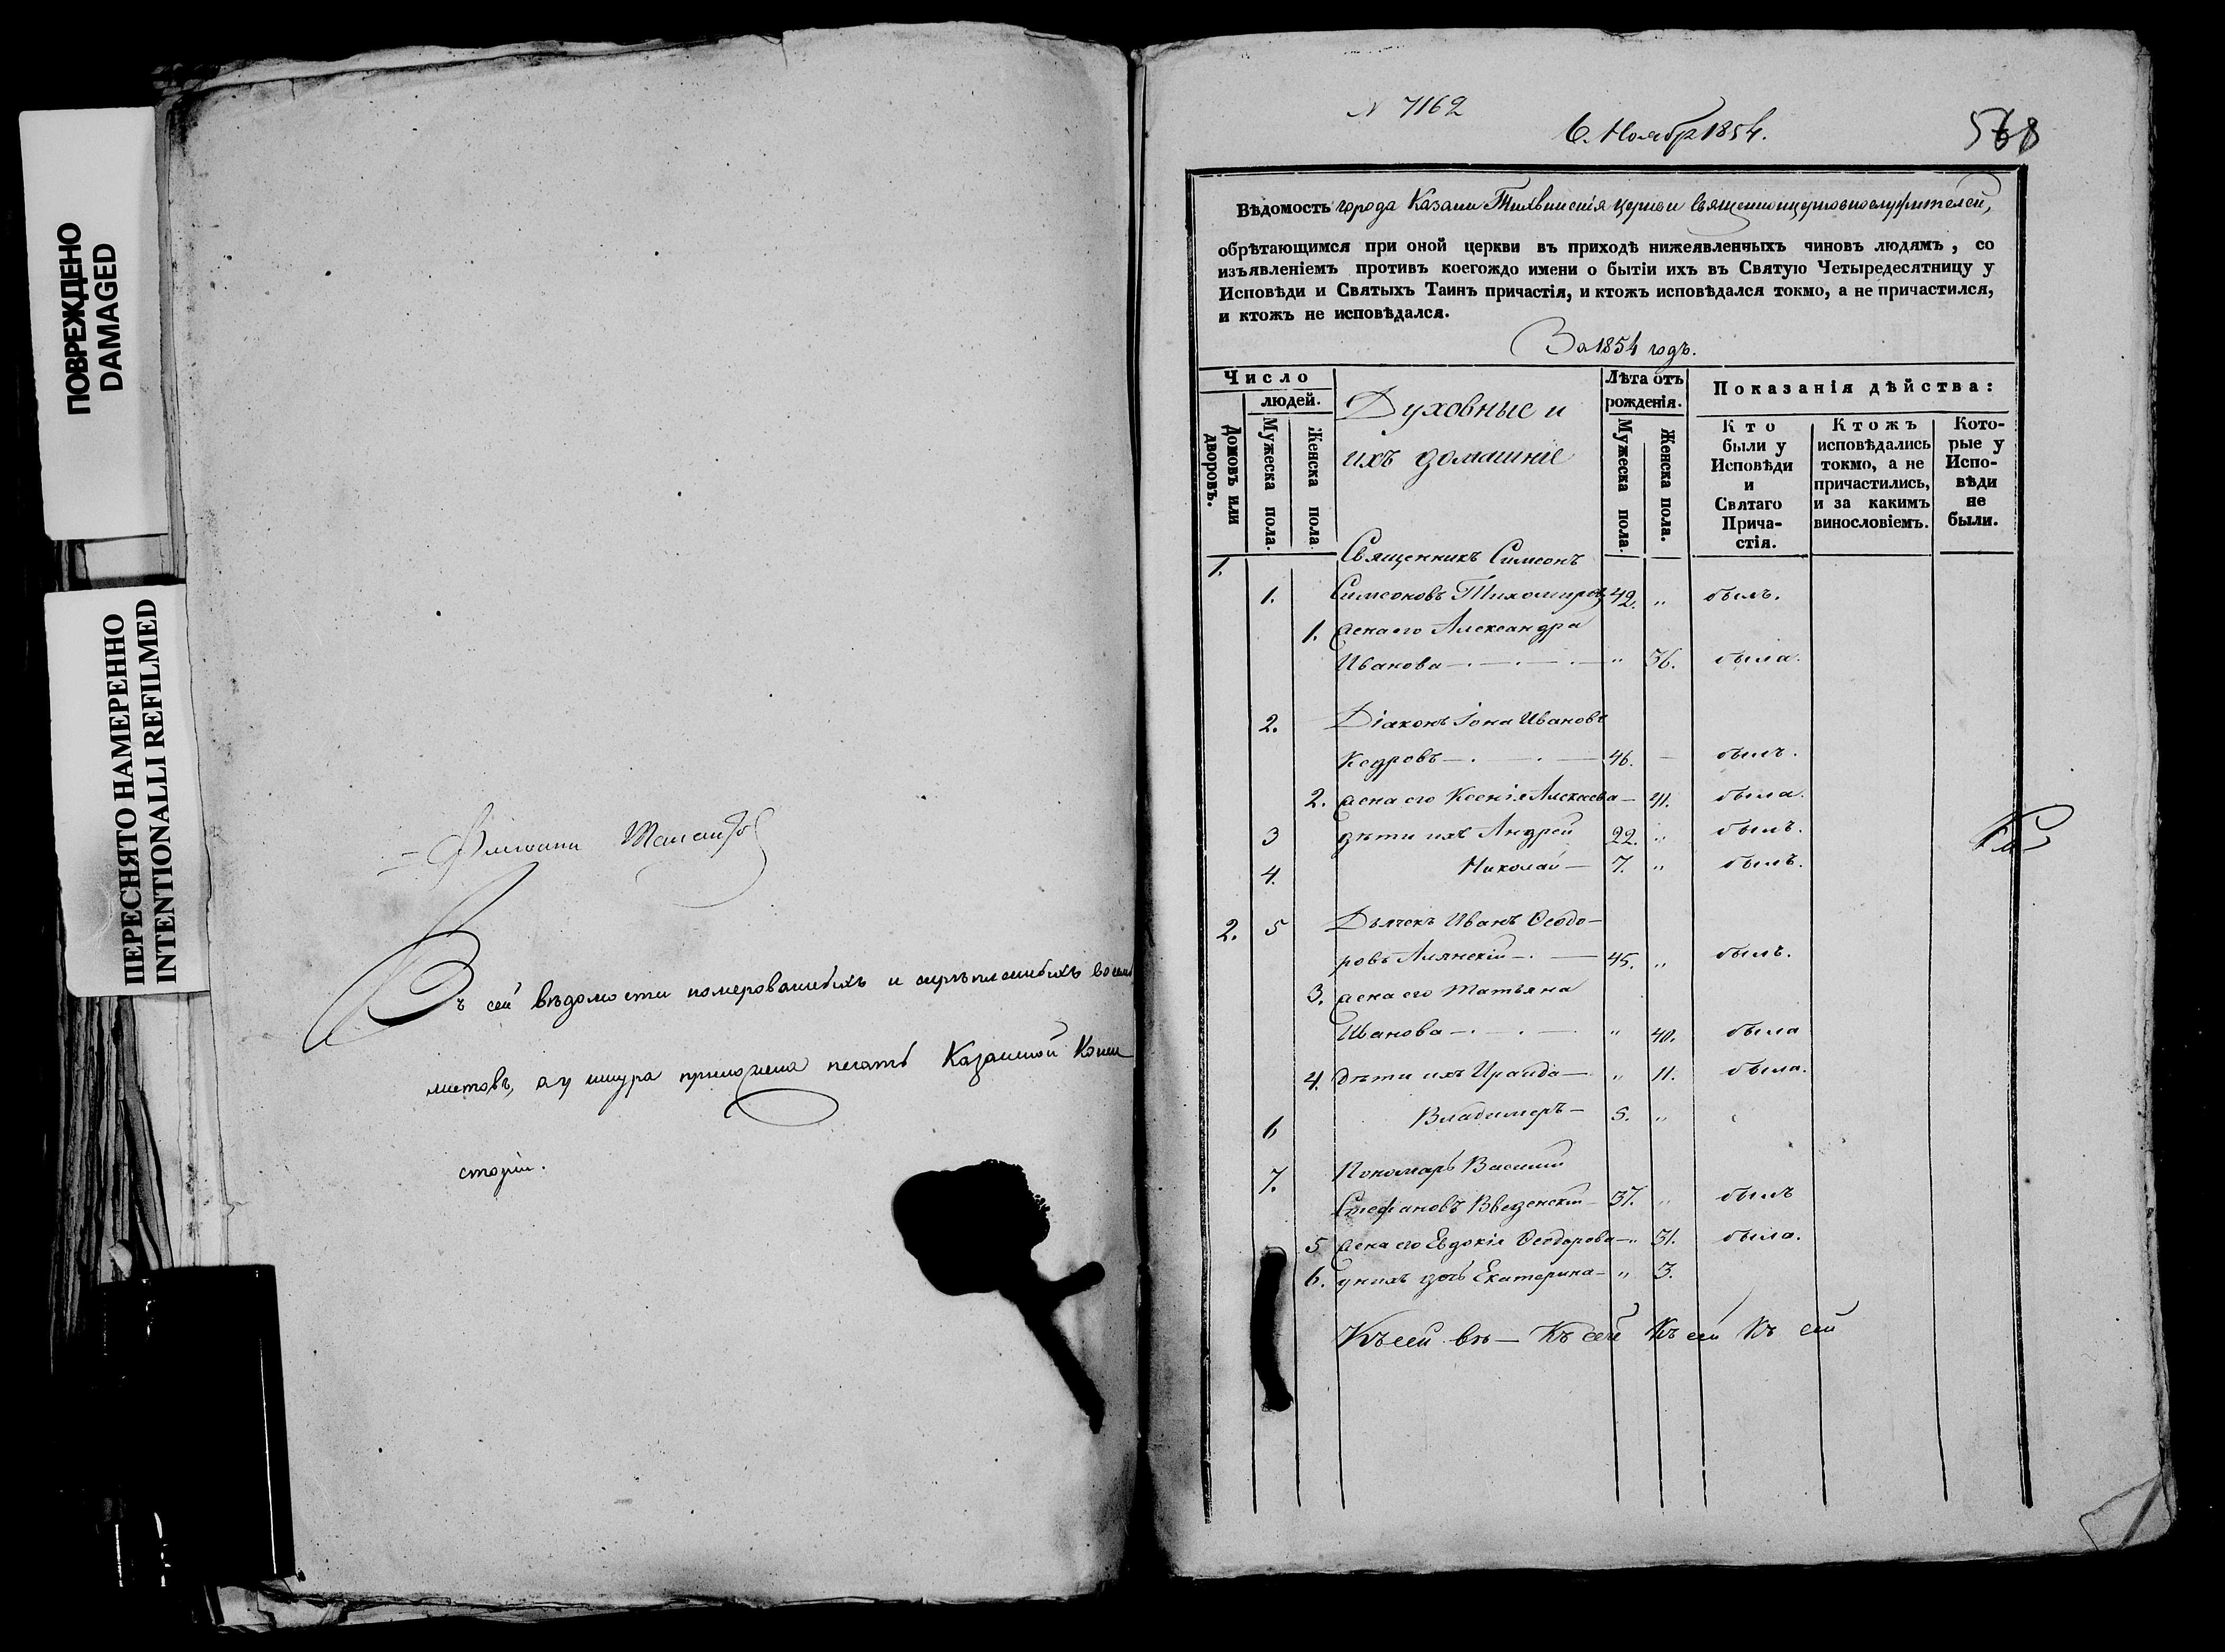 ПОВРЕЖДЕНО
DAMAGED
ПЕРЕСНЯТО НАМЕРЕННО
INTENTIONALLI REFILMED
Въ сей вѣдомости номерованныхъ и скрѣпленныхъ восемь
листовъ, а у шнура приложена печать Казанской Конси
сторіи.
N 7162
6. Ноябр 1854.
568
Вѣдомость города Казани Тихвинскія церкви священноцерковнослужителей,
обрѣтающимся при оной церкви въ приходѣ нижеявленныхъ чиновъ людямъ, со
изъявленіемъ противъ коегождо имени о бытіи ихъ въ Святую Четыредесятницу у
Исповѣди и Святыхъ Таинъ причастія, и ктожъ исповѣдался токмо, а не причастился,
и ктожъ не исповѣдался.
За 1854 годъ.
Число
людей.
Домовъ или дворовъ.
Мужеска пола.
Женска пола.
Духовные и
ихъ домашніе
Лѣта отъ
рожденія.
Мужеска пола.
Женска пола.
Показанія дѣйства:
Кто
были у
Исповѣди
и
Святаго
Прича-
стія.
Ктожъ
исповѣдались
токмо, а не
причастились,
и за какимъ
винословіемъ.
Кото-
рые у
Испо-
вѣди
не
были.
1. Священникъ Симеонъ
1. Симеоновъ Тихомировъ 42. „ былъ.
1. жена его Александра
Иванова — „ 36. была.
2. Діаконъ Іона Ивановъ
Кедровъ — 46. — былъ.
2. жена его Ксенія Алексѣева — 41. была.
3 дѣти ихъ Андрей 22. „ былъ.
4. Николай — 7. „ былъ.
2. 5 Дьячекъ Иванъ Ѳеодо-
ровъ Алянскій — 45. „ былъ.
3. жена его Татьяна
Иванова — „ 40. была
4. дѣти ихъ Ираида — „ 11. была.
6 Владимеръ — 5. „
7. Пономарь Василій
Стефановъ Введенскій — 37. „ былъ
5 жена его Евдокія Ѳеодорова — „ 31. была.
6. у нихъ дочь Екатерина — „ 3.
Къ сей вѣ — Къ сей Къ сей Къ сей